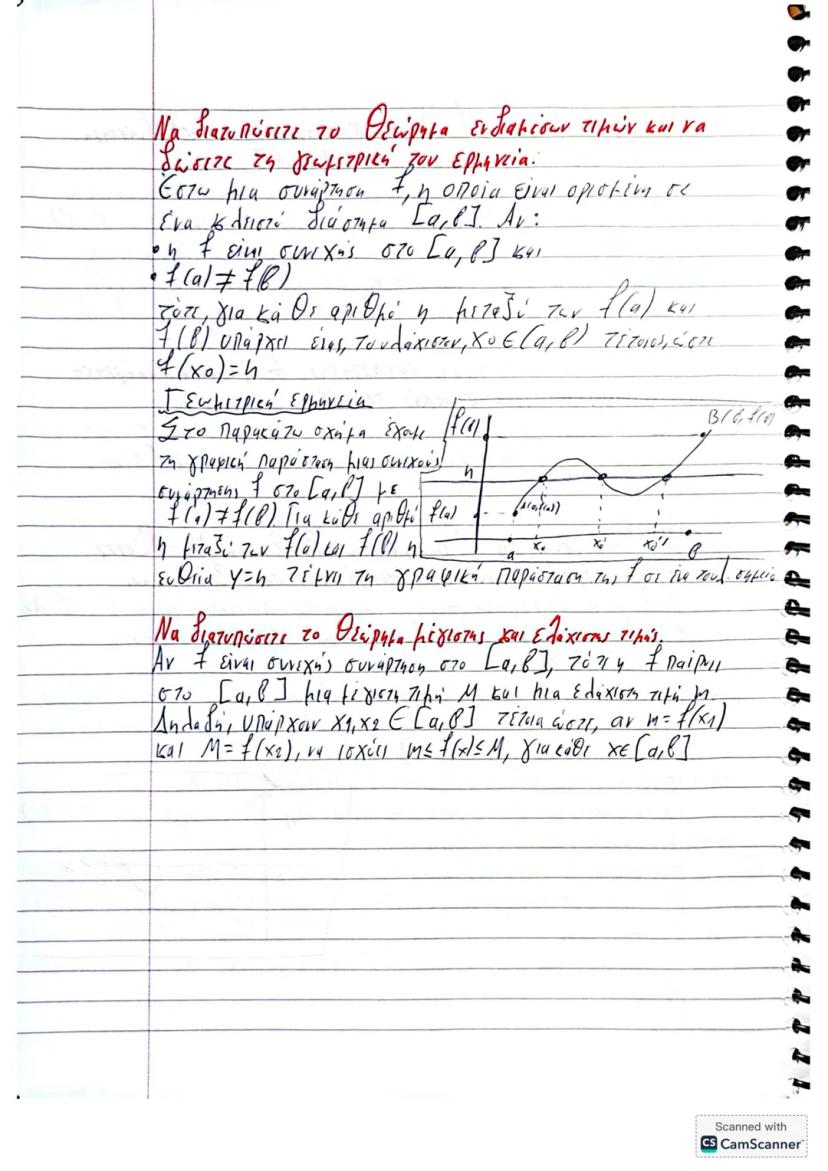 Να διατυπώσετε το Θεώρημα ενδιαμέσων τιμών και να
δώσετε τη γεωμετρική του ερμηνεία.
Έστω μια συνάρτηση f, η οποία είναι ορισμένη σε
ένα κλειστό διάστημα [α,β]. Αν:
• η f είναι συνεχής στο [α,β] και
• f(α)≠f(β)
τότε, για κάθε αριθμό η μεταξύ των f(α) και
f(β) υπάρχει ένας, τουλάχιστον, x0∈(α,β) τέτοιος, ώστε
f(x0)=η
Γεωμετρική ερμηνεία
Στο παρακάτω σχήμα έχουμε
τη γραφική παράσταση μιας συνεχούς
συνάρτησης f στο [α,β] με
f(α)≠f(β). Για κάθε αριθμό
η μεταξύ των f(α) και f(β) η
ευθεία y=η τέμνει τη γραφική παράσταση της f σε ένα τουλ. σημείο
f(β)
B(β,f(β))
η
f(α)
A(α,f(α))
α
x0
x0'
x0''
β
Να διατυπώσετε το Θεώρημα μέγιστης και ελάχιστης τιμής.
Αν f είναι συνεχής συνάρτηση στο [α,β], τότε η f παίρνει
στο [α,β] μια μέγιστη τιμή M και μια ελάχιστη τιμή m.
Δηλαδή, υπάρχουν x1,x2∈[α,β] τέτοια ώστε, αν m=f(x1)
και M=f(x2), να ισχύει m≤f(x)≤M, για κάθε x∈[α,β]
Scanned with
CS CamScanner